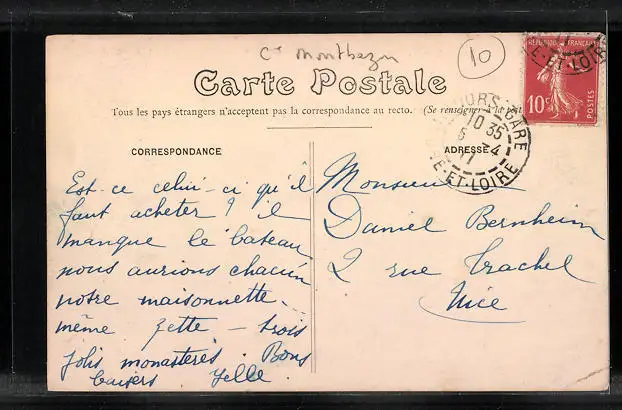 Cne Montbazon
10
Carte Postale
Tous les pays étrangers n'acceptent pas la correspondance au recto. (Se renseigner à la post
REPUBLIQUE FRANÇAISE
10c
POSTES
TOURS-GARE
10 35
5 -4
11
E-ET-LOIRE
E-ET-LOIRE
CORRESPONDANCE
Est-ce celui-ci qu'il
faut acheter ? il
manque le bateau
nous aurions chacun
notre maisonnette
même Zette - trois
jolis monastères. Bons
baisers Yelle.
ADRESSE
Monsieur
Daniel Bernheim
2 rue Trachel
Nice